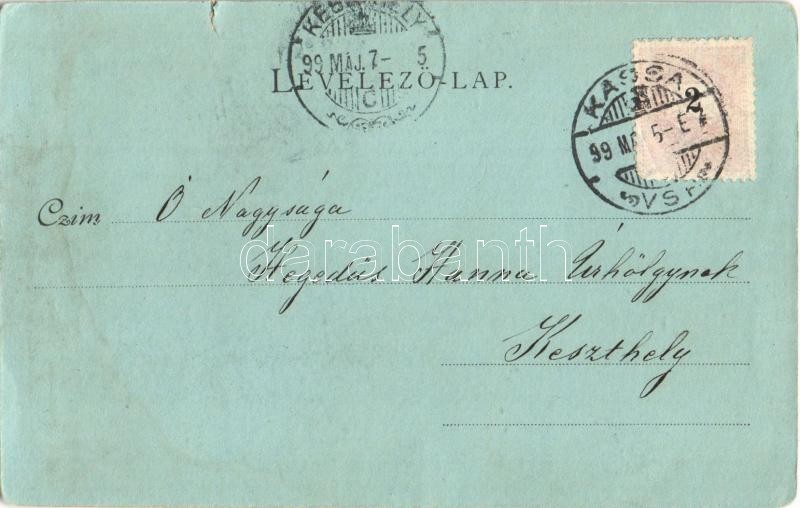 99 MÁJ. 7- 5
C
LEVELEZŐ-LAP.
KASSA
2
99 MÁ 5-E
VS
Czim Ő Nagysága
darabanth
Hegedűs Hanna Úrhölgynek
Keszthely